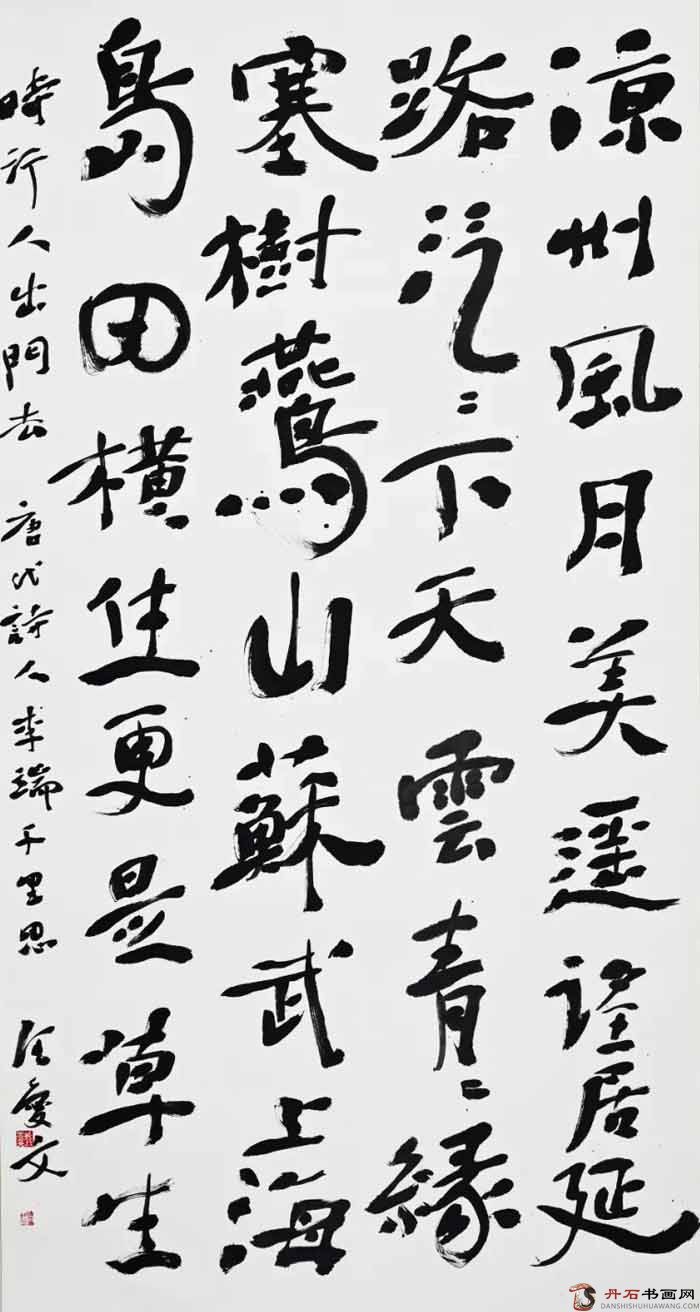 涼州風月美遥望居延
路泛〻下天雲青〻緣
塞樹鷰山蘇武上海
島田橫住更是草生
時行人出門去 唐代詩人李瑞千里思 汪愛文
丹石书画网
DANSHISHUHUAWANG.COM